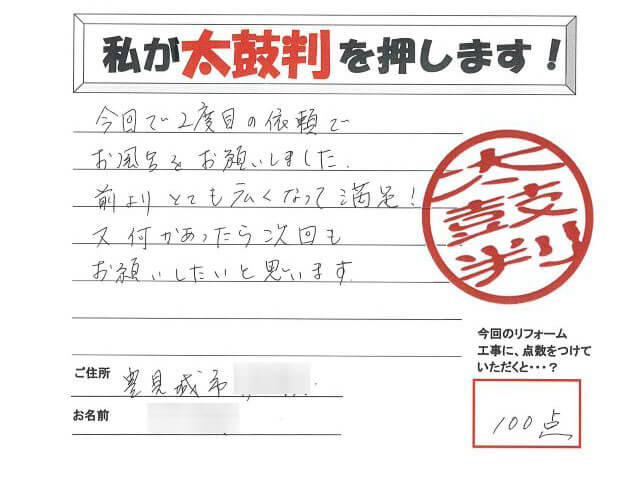 私が太鼓判を押します！
今回で2度目の依頼で
お風呂をお願いしました.
前よりとても広くなって満足！
又何かあったら次回も
お願いしたいと思います.
太鼓判
今回のリフォーム
工事に、点数をつけて
いただくと・・・？
ご住所 豊見城市
お名前
100点